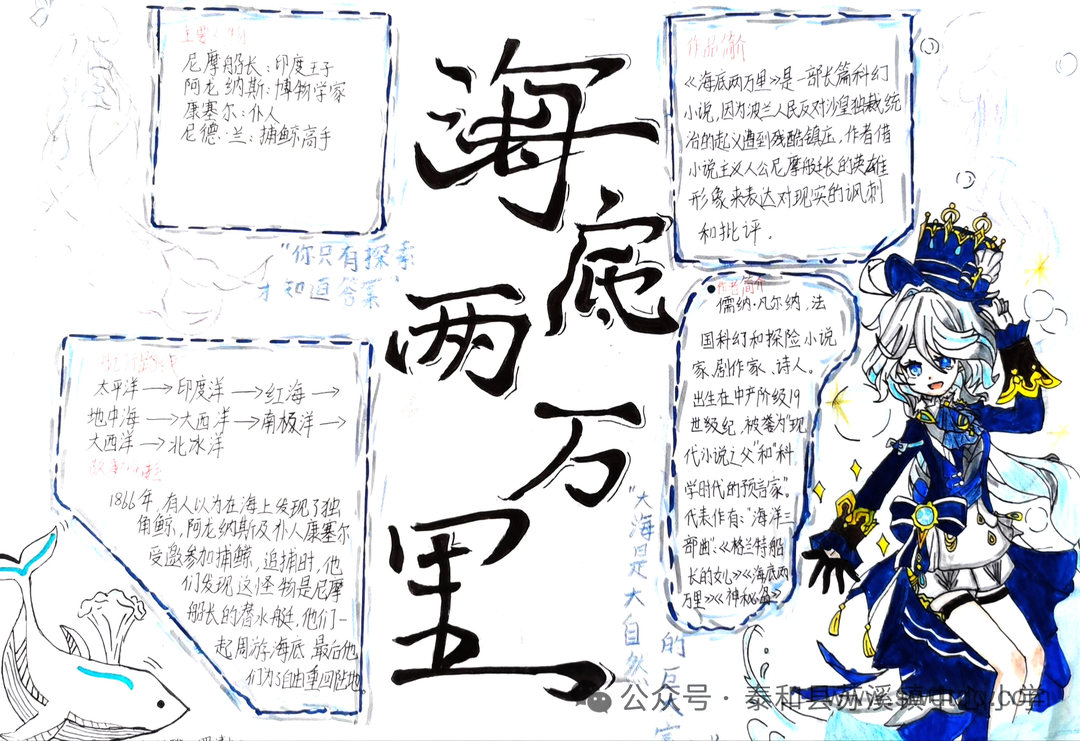 海底两万里
尼摩船长：印度王子
阿龙纳斯：博物学家
康塞尔：仆人
尼德·兰：捕鲸高手
"你只有探索
才知道答案"
太平洋→印度洋→红海→
地中海→大西洋→南极洋→
大西洋→北冰洋
1866年，有人以为在海上发现了独
角鲸，阿龙纳斯及仆人康塞尔
受邀参加捕鲸，追捕时，他
们发现这怪物是尼摩
船长的潜水艇，他们一
起周游海底，最后他
们为了自由重回陆地。
作品简介
《海底两万里》是一部长篇科幻
小说，因为波兰人民反对沙皇独裁统
治的起义遭到残酷镇压，作者借
小说主义人公尼摩船长的英雄
形象来表达对现实的讽刺
和批评。
作者简介
儒纳·凡尔纳，法
国科幻和探险小说
家、剧作家、诗人。
出生在中产阶级19
世级纪，被誉为"现
代小说之父"和"科
学时代的预言家"。
代表作有："海洋三
部曲"、《格兰特船
长的女儿》《海底两
万里》《神秘岛》
"大海是大自然
的巨
公众号 · 泰和县苏溪镇中心小学